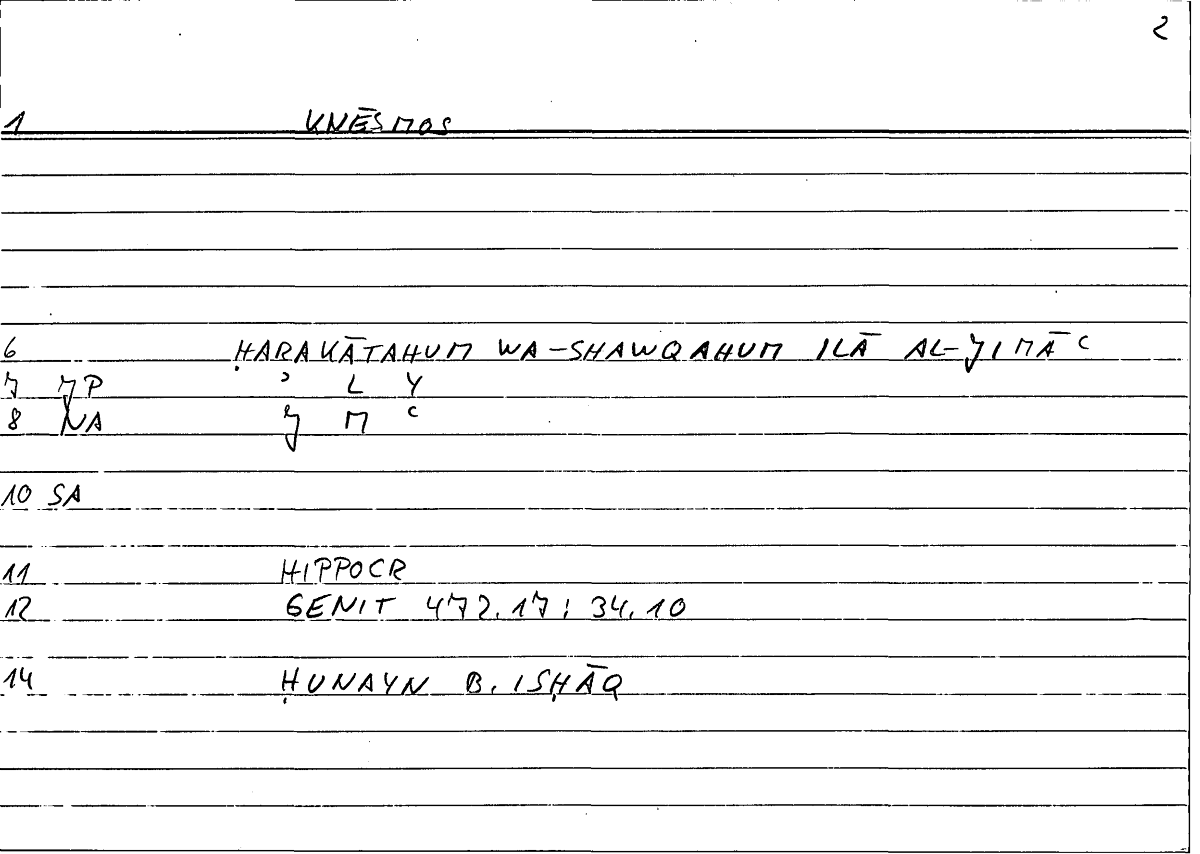 2
1 KNĒSMOS
6 ḤARAKĀTAHUM WA-SHAWQAHUM ILĀ AL-JIMĀʿ
7 JP ʾ L Y
8 NA J M ʿ
10 SA
11 HIPPOCR
12 GENIT 472.17 : 34.10
14 ḤUNAYN B. ISḤĀQ